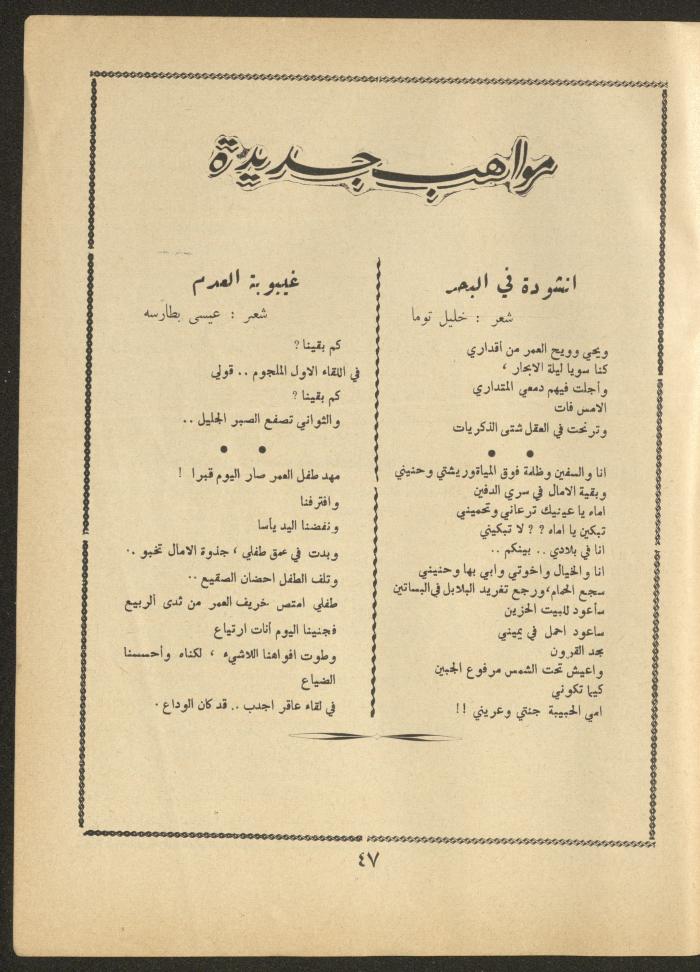 مواهب جديدة
انشودة في البحر
شعر : خليل توما
ويحي وويح العمر من أقداري
كنا سويا ليلة الابحار ،
وأجلت فيهم دمعي المتداري
الامس فات
وترنحت في العقل شتى الذكريات
انا والسفين وظلمة فوق المياة وريشتي وحنيني
وبقية الامال في سري الدفين
اماه يا عينيك ترعاني وتحميني
تبكين يا اماه ? ? لا تبكيني
انا في بلادي .. بينكم ..
انا والخيال واخوتي وابي بها وحنيني
سجع الحمام،ورجع تغريد البلابل في البساتين
سأعود للبيت الحزين
ساعود احمل في يميني
مجد القرون
واعيش تحت الشمس مرفوع الجبين
كيما تكوني
امي الحبيبة جنتي وعريني !!
غيبوبة العدم
شعر : عيسى بطارسه
كم بقينا ?
في اللقاء الاول الملجوم .. قولي
كم بقينا ?
والثواني تصفع الصبر الجليل ..
مهد طفل العمر صار اليوم قبرا !
وافترقنا
ونفضنا اليد يأسا
وبدت في عمق طفلي ، جذوة الامال تخبو ..
وتلف الطفل احضان الصقيع ..
طفلي امتص خريف العمر من ثدى ألربيع
فجنينا اليوم أنات ارتياع
وطوت افواهنا اللاشيء ، لكناه وأحسسنا
الضياع
في لقاء عاقر اجدب .. قد كان الوداع .
٤٧